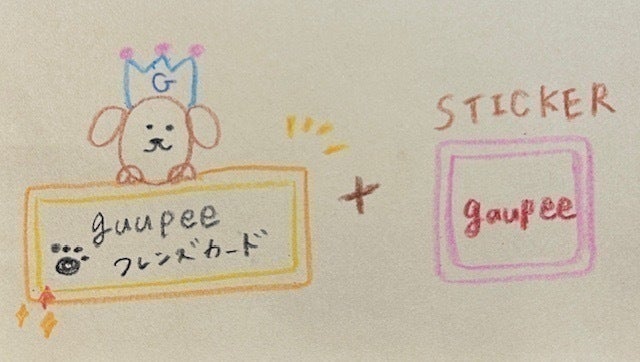 G
guupee
フレンズカード
+
STICKER
gaupee